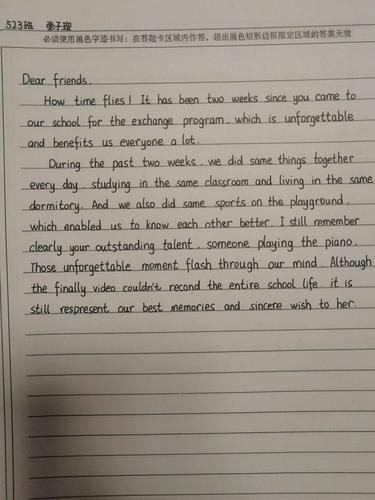 523班 张子璇
必须使用黑色字迹书写；在答题卡区域内作答，超出黑色矩形边框限定区域的答案无效
Dear friends,
How time flies! It has been two weeks since you came to
our school for the exchange program, which is unforgettable
and benefits us everyone a lot.
During the past two weeks, we did same things together
every day, studying in the same classroom and living in the same
dormitory. And we also did same sports on the playground,
which enabled us to know each other better. I still remember
clearly your outstanding talent, someone playing the piano.
Those unforgettable moment flash through our mind. Although
the finally video couldn't recond the entire school life, it is
still respresent our best memories and sincere wish to her.